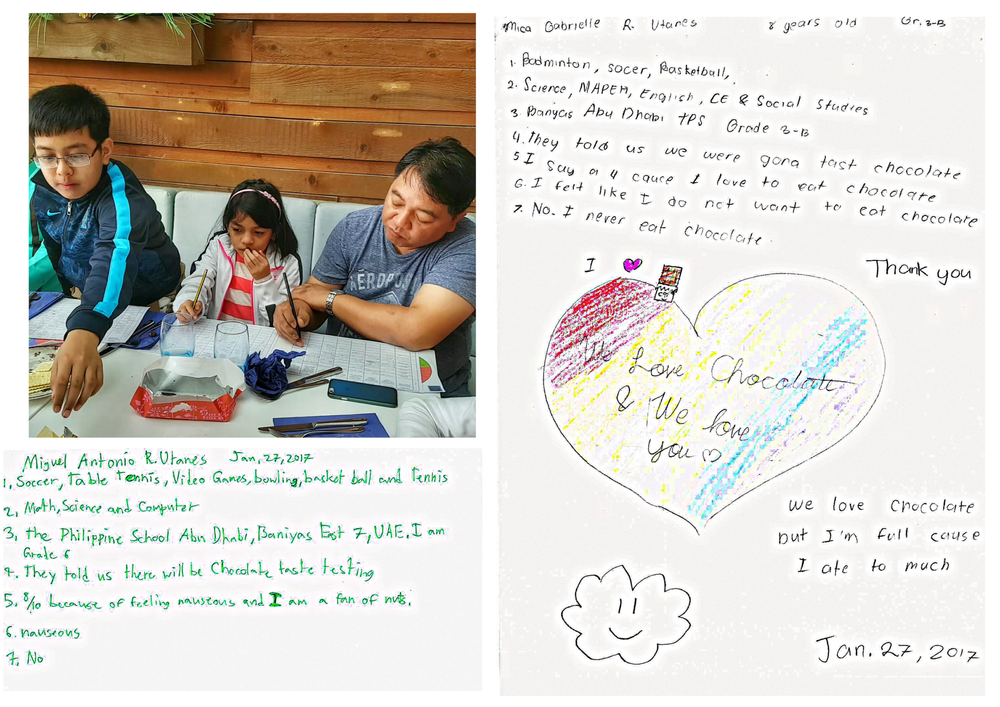 AEROPOS
Miguel Antonio R. Utanes Jan. 27, 2017
1, Soccer, Table Tennis, Video Games, bowling, basket ball and Tennis
2, Math, Science and Computer
3, the Philippine School Abu Dhabi, Baniyas East 7, UAE. I am
Grade 6
4. They told us there will be Chocolate taste testing
5. 8/10 because of feeling nauseous and I am a fan of nuts.
6. nauseous
7, No
Mica Gabrielle R. Utanes 8 years old Gr. 3-B
1. Badminton, socer, Basketball,
2. Science, MAPEH, English, CE & Social Studies
3. Baniyas Abu Dhabi TPS Grade 3-B
4. They told us we were gona tast chocolate
5 I say a 4 cause I love to eat chocolate
6. I felt like I do not want to eat chocolate
7. No. I never eat chocolate.
Thank you
I
We Love Chocolate
& We love
you
we love chocolate
but I'm full cause
I ate to much
Jan. 27, 2017